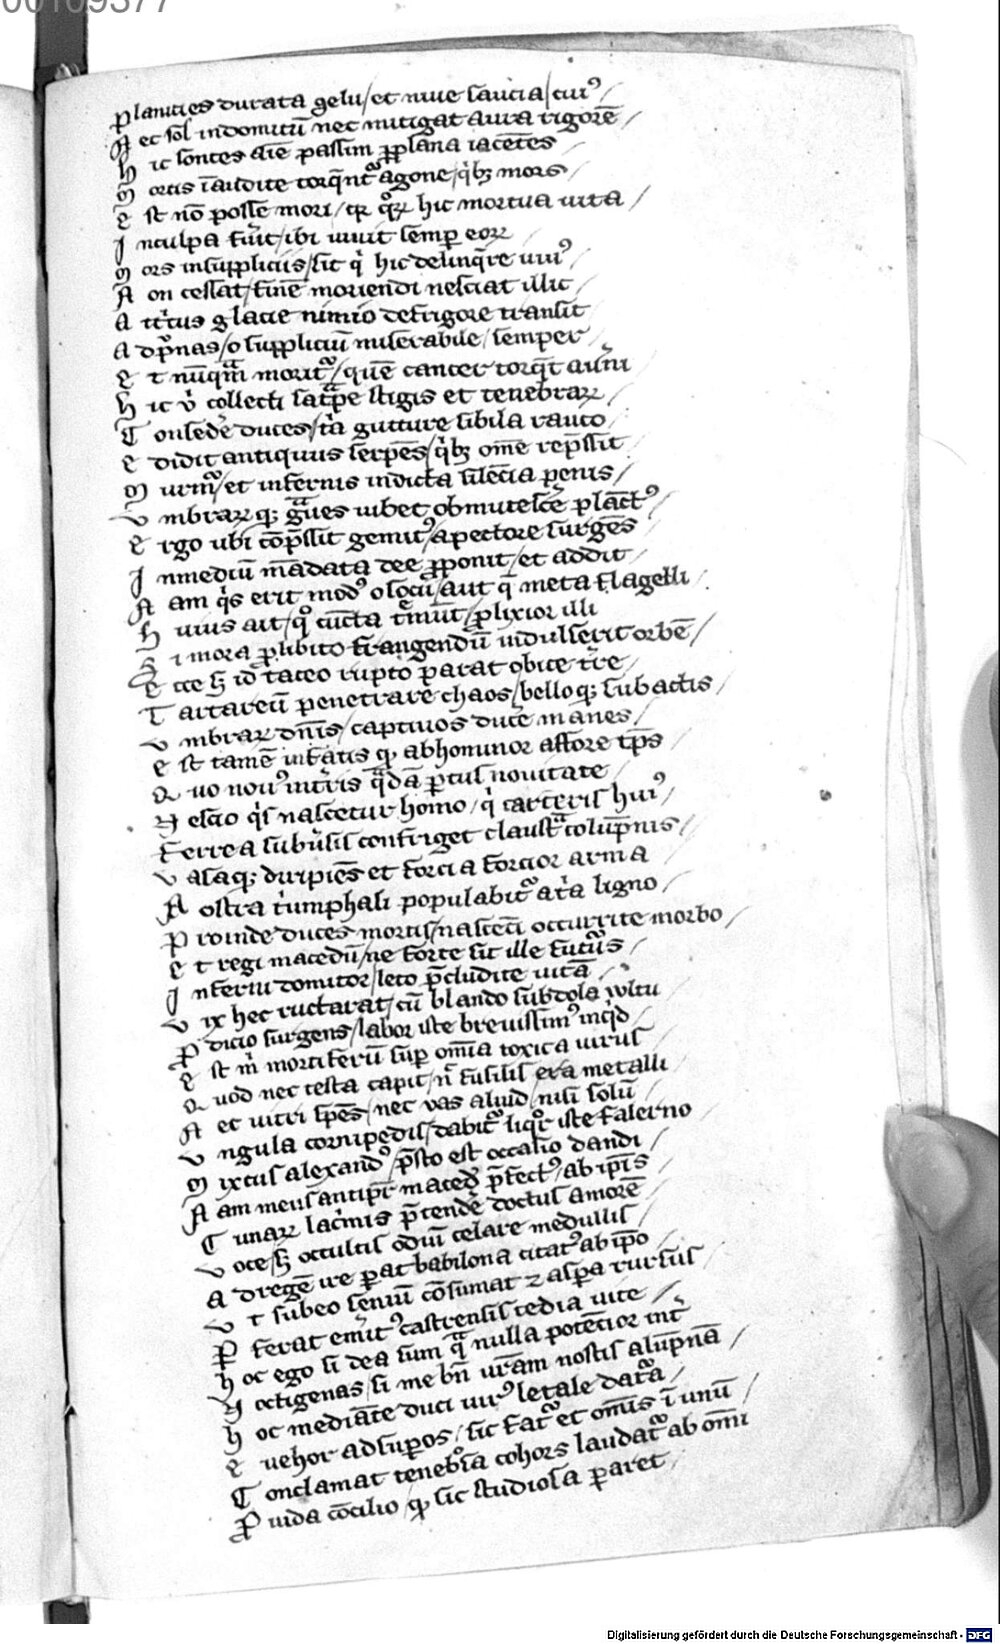 00109377
Planicies durata gelu / et niue saucia / cuiꝰ /
Nec sol indomitū nec mitigat aura rigorē /
Hic sontes aīe passim ꝑ plana iacētes /
Mortis īaudite torq̄ntᷣ agone / qͥbꝫ mors /
Est nō posse mori / qꝛ qͦꝝ hic mortua uita /
In culpa fuͥt / ibi uiuit semꝑ eoꝝ
Mors in suppliciis / sit qͥ hic delinq̄re uiuꝰ /
Non cessat / finē moriendi nesciat illic /
Attritus glacie nimio de frigore transit
Ad pͥnas / o suppliciū miserabile / semper /
Et nūqᷓm moritᷣ / quē cancer torq̄t auͥni
Hic v̓ collecti satᷓpe stigis et tenebraꝝ /
Consedē̓ duces / tͣa gutture sibila rauco /
Edidit antiquus serpēs / qͥbꝫ om̄e rep̄ssit
Murmᷣ / et infernis indicta silēcia penis /
Vmbraꝝ qꝫ gᷓues iubet obmutescē̓ plāctꝰ /
Ergo ubi cōp̄ssit gemitꝰ / a pectore surgēs /
In mediū mādata dee ꝓponit / et addit /
Nam qͥs erit modꝰ o socii / aut qͣ meta flagelli /
Huius ait / qͦ cūcta tͤmūt / ꝓlixior illi
Si mora ꝓ libito frangendū indulserit orbē /
Ecce h̄ id taceo rupto parat obice tr̄re /
Tartareū penetrare chaos / bello qꝫ subactis /
Vmbraꝝ dn̄is / captiuos ducē̓ manes /
Est tamē in fatis qͦ abhominor affore tp̄s
Quo nouꝰ in tr̄ris qͦdā ꝑtus nouitate /
Nescio qͥs nascetur homo / qͥ carceris huiꝰ /
Ferrea subuͥsis confriget claustᷓ colūpnis /
Vasa qꝫ diripiēs et forcia forcior arma
Nostra tͥumphali populabitᷣ atͥa ligno /
Proinde duces mortis / nascēti occurrite morbo /
Et regi macedū / ne forte sit ille futūs /
Inferni domitor / leto p̄cludite uitā /
Vix hec ructarat / cū blando subdola wltu
Prodicio surgens / labor iste breuissimꝰ inqͥd
Est m̄ mortiferū suꝑ om̄ia toxica uirus
Quod nec testa capit / n̄ fusilis era metalli
Nec uitri sp̄es / nec vas aliud / nisi solū
Vngula cornipedis / dabitᷣ liqͦr iste falerno
Mixtus alexandͦ / p̄sto est occasio dandi /
Nam meus antipr̄ macedꝫ p̄fectꝰ / ab ip̄is
Cunaꝝ lacͥmis p̄tendē̓ doctus amorē /
Voce / h̄ occultis odiū celare medullis /
Ad regē ire parat babilona citatꝰ ab ip̄o /
Vt subeo seniū cōsumat ⁊ aspa rursus /
Perferat emͥtꝰ castrensis tedia uite /
Hoc ego si dea sum qͣ nulla potēcior int̓
Noctigenas / si me bn̄ vr̄am nostis alūpnā /
Hoc mediāte duci uirꝰ letale datᷣa /
Euehor ad suꝑos / sic fatᷣ et om̄is ī unū /
Conclamat tenebͦsa cohors laudatᷣ ab om̄i
Prouida cōcilio / qͦ sic studiosa paret /
Digitalisierung gefördert durch die Deutsche Forschungsgemeinschaft - DFG